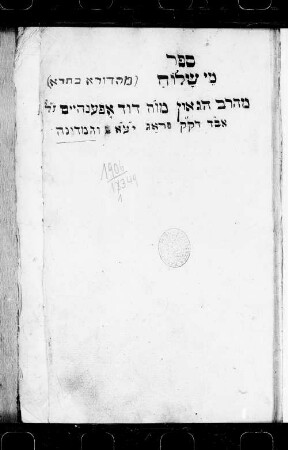 ספר
מי שלוח (מהדורא בתרא)
מהרב הגאון מו"ה דוד אפענהיים זצ"ל
אבד דק"ק פראג יצ"א והמדינה
1906
17349
1